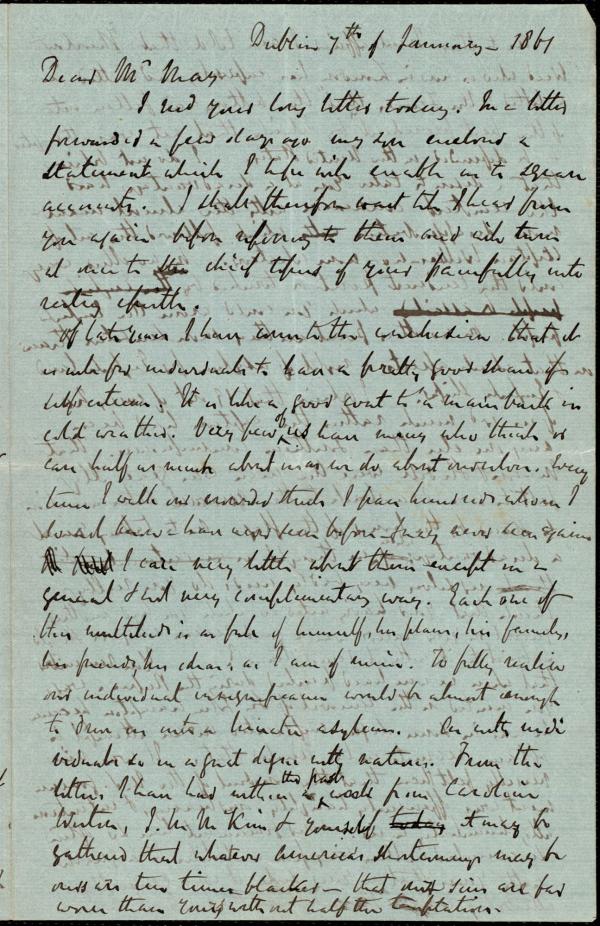 Dublin 7th of January - 1861
Dear Mr May
I recd your long letter today. In a letter
forwarded a few days ago my son enclosed a
statement which I hope will enable us to square
accounts. I shall therefore wait till I hear from
you again before referring to them and will turn
at once to the chief topics of your painfully inte
resting epistle.
Of late years I have come to the conclusion that it
is well for individuals to have a pretty good share of
self esteem. It is like a good coat to a man's back in
cold weather. Very few of us have many who think or
care half as much about us as we do about ourselves. Every
time I walk our crowded streets I pass hundreds whom I
have never seen before & may never see again
I care very little about them except in a
general & not very complimentary way. Each one of
this multitude is as full of himself, his plans, his family,
his friends, his ideas as I am of mine. To fully realise
our individual insignificance would be almost enough
to drive us into a lunatic asylum. As with indi
viduals so in a great degree with nations. From the
letters I have had within the past week from Caroline
Weston, J. M. McKim & yourself it may be
gathered that whatever America's shortcomings may be
ours are ten times blacker - that our sins are far
worse than yours without half the temptation.